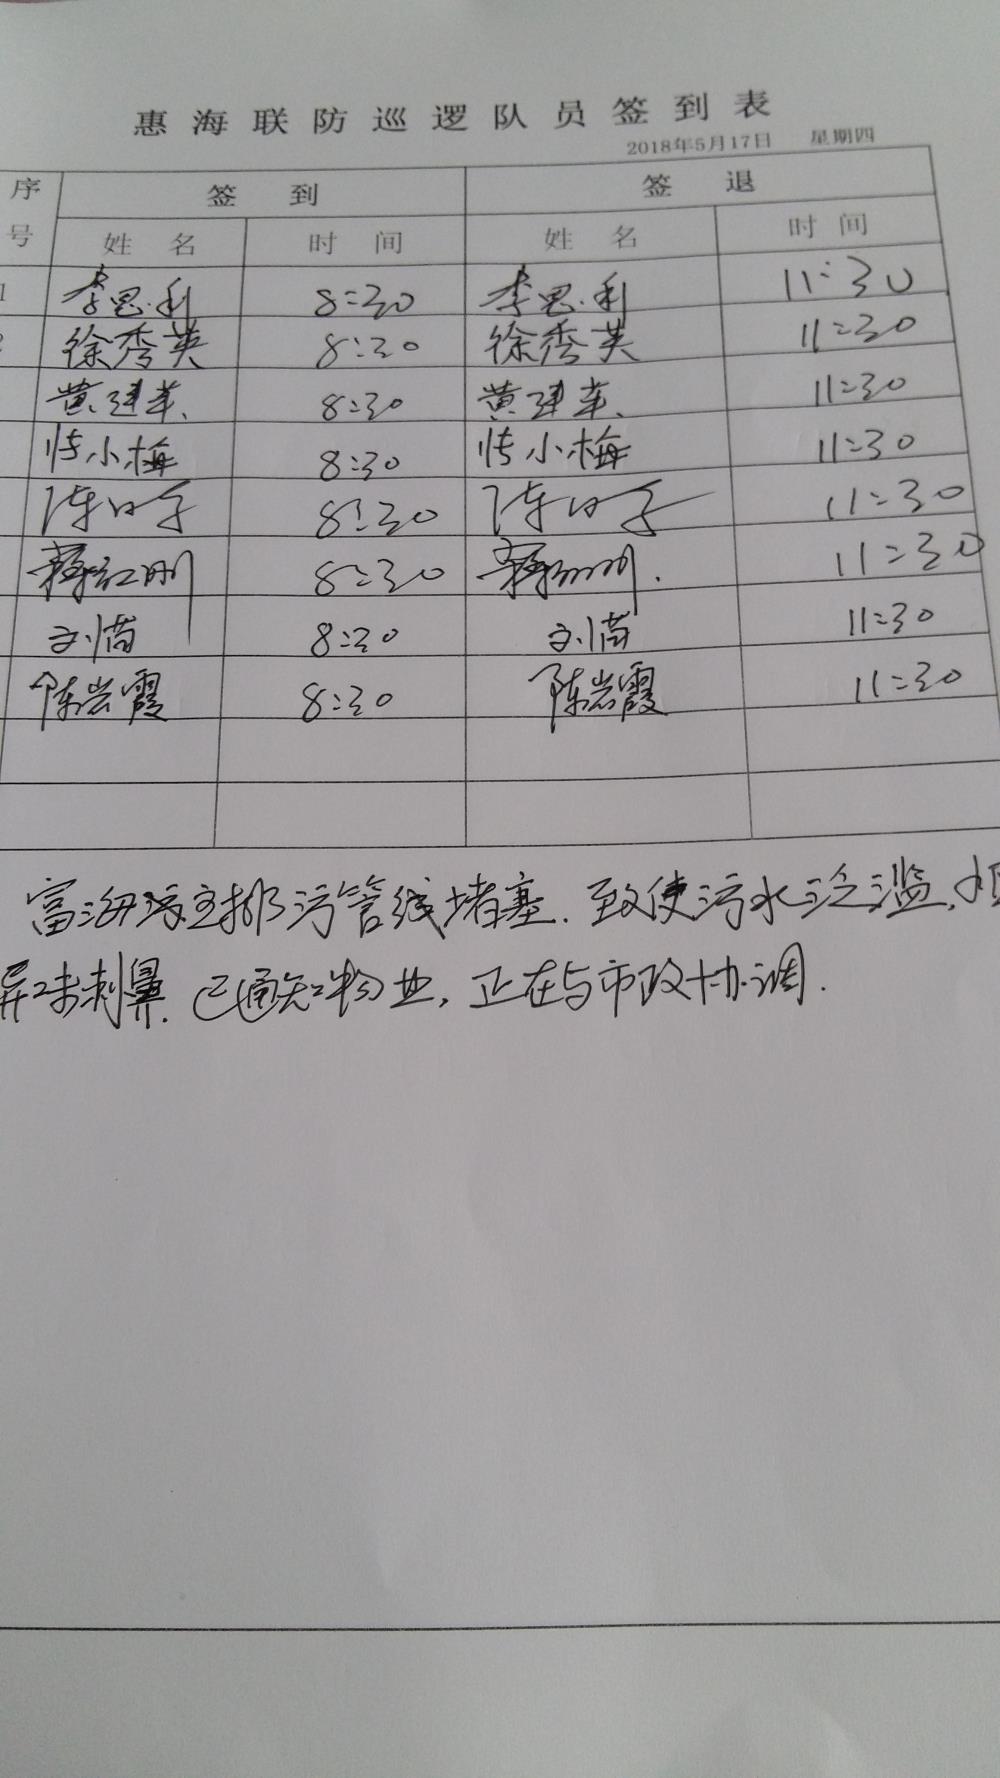 惠海联防巡逻队员签到表
2018年5月17日 星期四
序号 签到 签退
姓名 时间 姓名 时间
1 李思利 8:30 李思利 11:30
徐秀英 8:30 徐秀英 11:30
黄建革 8:30 黄建革 11:30
小梅 8:30 小梅 11:30
陈 8:30 陈 11:30
8:30 11:30
刘苗 8:30 刘苗 11:30
陈岩霞 8:30 陈岩霞 11:30
富海 主排污管线堵塞.致使污水泛滥,
异味刺鼻.已通知物业,正在与市政协调.